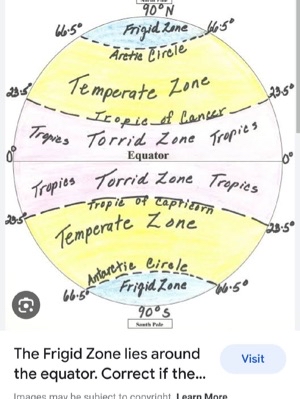 90°N
66.5° Frigid Zone 66.5°
Arctic Circle
23.5° Temperate Zone 23.5°
Tropic of Cancer
Tropics Torrid Zone Tropics
0° Equator 0°
Tropics Torrid Zone Tropics
Tropic of Capricorn
23.5° Temperate Zone 23.5°
Antarctic Circle
66.5° Frigid Zone 66.5°
90°S
South Pole
The Frigid Zone lies around
the equator. Correct if the...
Visit
Images may be subject to copyright. Learn More